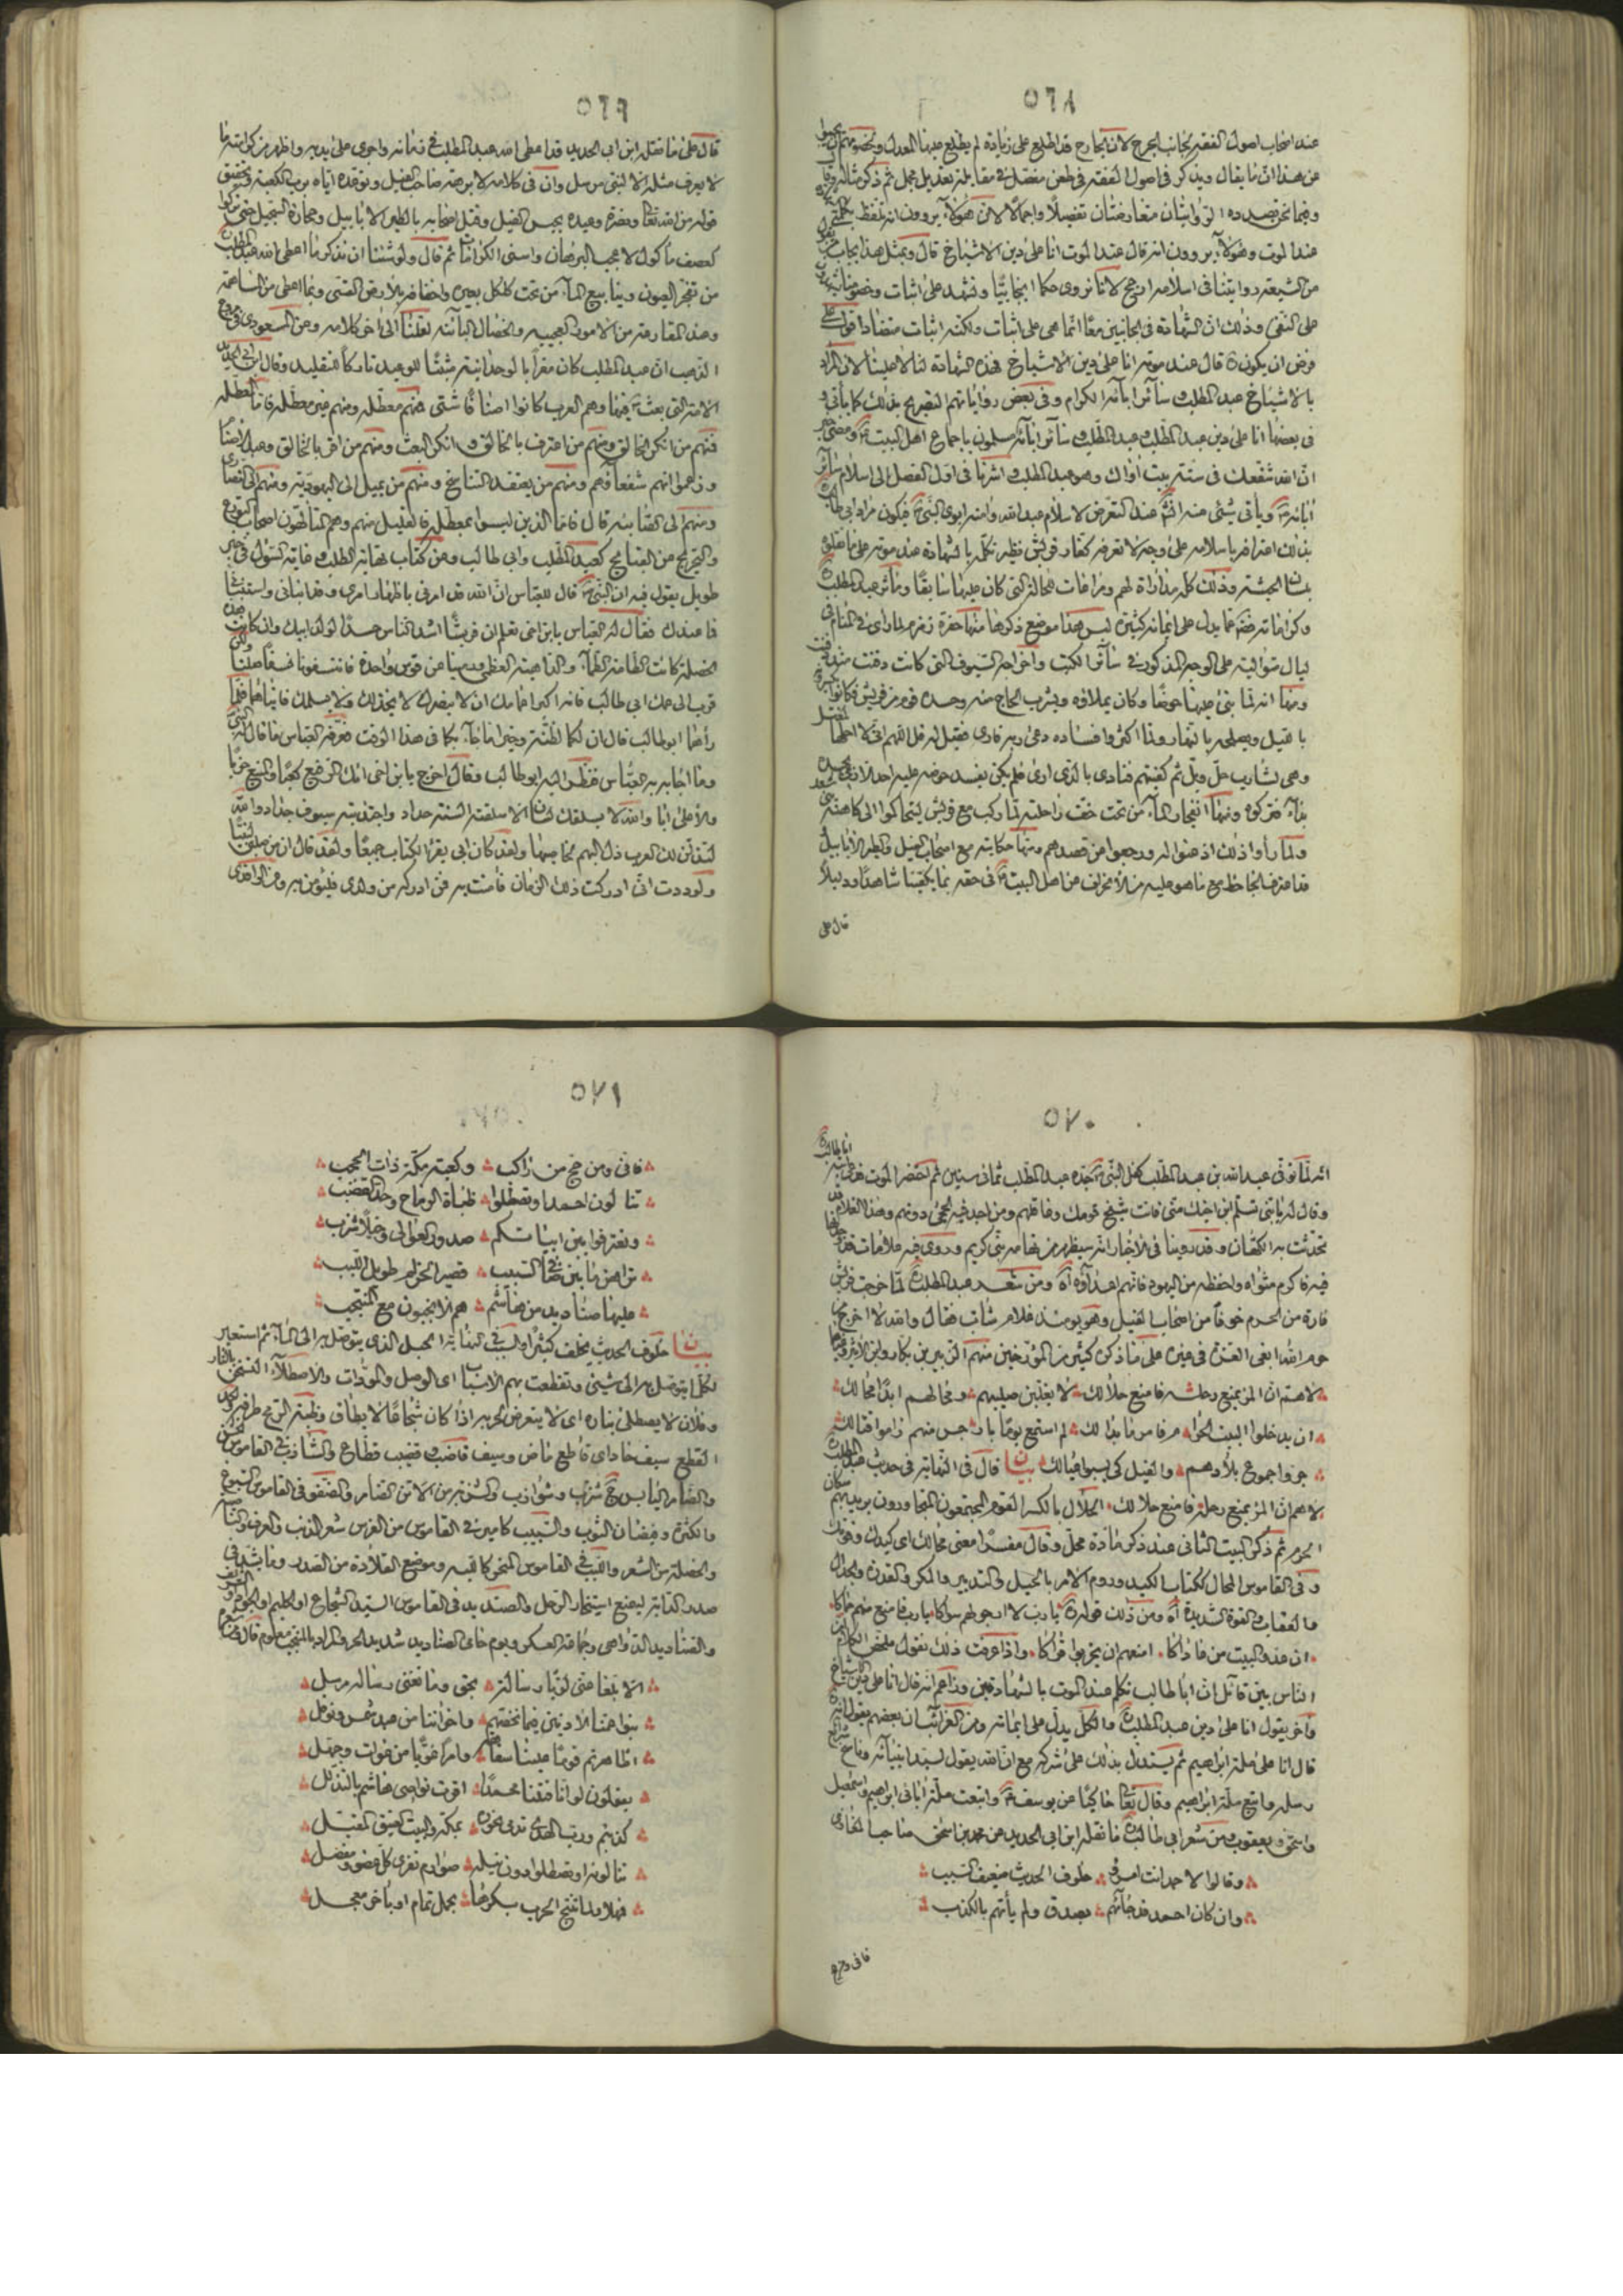 ٥٦٨
عند اصحاب اصول الفقه بجانب الجرح لان الجارح قد اطلع على زيادة لم يطلع عليها المعدل
عن هذا ان ما يقال ويذكر في اصول الفقه في طعن مفصل في مقابلة تعديل مجمل ثم ذكر مثاله وقال
وفيما نحن بصدده الروايتان متعارضتان تفصيلا واجمالا لان هؤلاء يروون انه تلفظ
عند الموت وهؤلاء يروون انه قال عند الموت انا على دين الاشياخ قال وبمثل هذا يجاب
من الشيعة روايتنا في اسلامه ارجح لانا نروي حكما ايجابيا ونشهد على اثبات وخصومنا
على النفي وذلك ان الشهادة في الجانبين معا انما هي على اثبات ولكنه اثبات متضاد
فرض ان يكون قال عند موته انا على دين الاشياخ فهذه الشهادة لنا لا علينا لان المراد
بالاشياخ عبد المطلب وسائر آبائه الكرام وفي بعض رواياتهم التصريح بذلك كما يأتي
في بعضها انا على دين عبد المطلب وعبد المطلب وسائر آبائه مسلمون باجماع اهل البيت
ان الله شفعك في ستة بيت آواك وهو عبد المطلب واشرنا في اول الفصل الى اسلام سائر
آبائه ويأتي شيء منه عند التعرض لاسلام عبد الله وامنة ابوي النبي فيكون مراد ابي طالب
بذلك اعترافه باسلامه على وجه لا تعرفه كفار قريش نظير تكلمه بالشهادة عند موته على ما نقلوه
بلسان الحبشة وذلك كله مداراة لهم ومراعات للحالة التي كان عليها سابقا ومآثر عبد المطلب
وكراماته مما يدل على ايمانه كثيرة ليس هذا موضع ذكرها منها حفره زمزم لما رأى في المنام
ليال متوالية على الوجه المذكور في سائر الكتب واخراجه السيوف التي كانت دفنت
ومنها انه لما بنى عليها حوضا وكان يملاؤه ويشرب الحاج منه وحسده قوم من قريش فكانوا
بالليل ويصلحه بالنهار ولما اكثروا فساده دعى ربه فقيل له قل اللهم اني لا احلها
وهي لشارب حل وبل ثم كفيتهم فنادى بالذي اري فلم يكن يفسد حوضه عليه احد الا
بداء فتركوه ومنها انفجار الماء من تحت خف راحلته لما ركب مع قريش ليتحاكموا الى كاهنة
ولما رأوا ذلك اذعنوا له ورجعوا من قصدهم ومنها حكايته مع اصحاب الفيل والطير الابابيل
قد اعترف الجاحظ مع ما هو عليه من الانحراف عن اهل البيت في حقه بما يكفينا شاهدا ودليلا
قال على
٥٦٩
قال على ما نقله ابن ابي الحديد قد اعطى الله عبد المطلب في زمانه واجرى على يديه واظهر من كرامته ما
لا يعرف مثله الا لنبي مرسل وان في كلامه لابرهة صاحب الفيل وتوعده اياه برب الكعبة وتحقيق
قوله من الله تعالى ونصره وعيده بحبس الفيل وقتل اصحابه بالطير الابابيل وحجارة السجيل حتى
كعصف مأكول لاعجب البرهان واسنى الكرامات ثم قال ولو شئنا ان نذكر ما اعطى الله عبد المطلب
من تفجر العيون وينابيع الماء من تحت كلكل بعيره واخفافه بالارض القسي وبما اعطى من المساهمة
وعند المقارعة من الامور العجيبة والخصال البائنة لقلنا الى آخر كلامه وعن المسعودي في مروج
الذهب ان عبد المطلب كان مقرا بالوحدانية مثبتا للوعيد تاركا للتقليد وقال ابن ابي الحديد
الامة التي بعث فيها وهم العرب كانوا اصنافا شتى فمنهم معطلة ومنهم غير معطلة فاما المعطلة
فمنهم من انكر الخالق ومنهم من اعترف بالخالق وانكر البعث ومنهم من اقر بالخالق وعبد الاصنام
وزعموا انهم شفعاؤهم ومنهم من يعتقد التناسخ ومنهم من يميل الى اليهودية ومنهم الى النصارى
ومنهم الى الصابئة قال فاما الذين ليسوا بمعطلة فالقليل منهم وهم المتألهون اصحاب الورع
والتحرج عن القبائح كعبد المطلب وابي طالب وعن كتاب نهاية الطلب وغاية السؤل في خبر
طويل يقول فيه ان النبي قال للعباس ان الله قد امرني باظهار امري وقد انباني واستنبأني
فما عندك فقال له العباس يا بن اخي تعلم ان قريشا اشد الناس حسدا لولد ابيك وان كانت
الخصلة كانت الطامة الطماء والداهية العظمى ورمينا عن قوس واحدة فانتسفونا نسفا صلتا
قرب الى عمك ابي طالب فانه اكبر اعمامك ان لا ينصرك لا يخذلك ولا يسلمك فاتياه فلما
رآهما ابو طالب قال ان لكما لظنة وخبرا ما جاء بكما في هذا الوقت فعرفه العباس ما قال له النبي
وما اجابه به العباس فنظر اليه ابو طالب وقال اخرج يا بن اخي انك الرفيع كعبا والمنيع حزبا
والاعلى ابا والله لا يسلقك لسان الا سلقته السنة حداد واجتذبته سيوف حداد والله
لتذلن لك العرب ذل البهم لحاضنها ولقد كان ابي يقرأ الكتاب جميعا ولقد قال ان من صلبي لنبيا
ولوددت اني ادركت ذلك الزمان فآمنت به فمن ادركه من ولدي فليؤمن به وعن الواقدي
٥٧٠
انه لما توفي عبد الله بن عبد المطلب كفل النبي جده عبد المطلب ثماني سنين ثم احتضر الموت
وقال له يا بني تسلم ابن اخيك مني فانت شيخ قومك وعاقلهم ومن اجد فيه الحجى دونهم وهذا الغلام
تحدثت به الكهان وقد روينا في الاخبار انه سيظهر من تهامة نبي كريم وروى فيه علامات
فيه فاكرم مثواه واحفظه من اليهود فانهم اعداؤه اه ومن شعر عبد المطلب لما خرجت قريش
فارة من الحرم خوفا من اصحاب الفيل وهو يومئذ غلام شاب فقال والله لا اخرج من
حرم الله ابغي العز في غيره على ما ذكره كثير من المؤرخين منهم الزبير بن بكار وابن الاثير
لاهم ان المرء يمنع رحله فامنع حلالك لا يغلبن صليبهم ومحالهم ابدا محالك
ان يدخلوا البيت الحرام فامر ما بدا لك لم استمع يوما بارجس منهم راموا قتالك
جروا جموع بلادهم والفيل كي يسبوا عيالك بيان قال في النهاية في حديث عبد المطلب
لاهم ان المرء يمنع رحله فامنع حلالك الحلال بالكسر القوم المجتمعون المتجاورون يريد بهم
الحرم ثم ذكر البيت الثاني عند ذكر مادة محل وقال مفسرا معنى محالك اي كيدك وقوتك
وفي القاموس المحال ككتاب الكيد وروم الامر بالحيل والتدبير والمكر والقدرة والجدال
والعقاب والقوة الشديدة اه ومن ذلك قوله يا رب لا ارجو لهم سواكا يا رب فامنع منهم حماكا
ان عدو البيت من عاداكا امنعهم ان يخربوا قراكا واذا عرفت ذلك نقول ملخص الكلام
الناس بين قائل ان ابا طالب تكلم عند الموت بالشهادتين وزاعم انه قال انا على دين الاشياخ
وآخر يقول انا على دين عبد المطلب والكل يدل على ايمانه ومن الغرائب ان بعضهم يقول انه
قال انا على ملة ابراهيم ثم يستدل بذلك على شركه مع ان الله يقول لسيد انبيائه
رسله واتبع ملة ابراهيم وقال تعالى حاكيا عن يوسف واتبعت ملة آبائي ابراهيم واسمعيل
واسحق ويعقوب ومن شعر ابي طالب ما نقله ابن ابي الحديد عن محمد بن اسحق صاحب المغازي
وقالوا لاحمد انت امرؤ خلوف الحديث ضعيف السبب
وان كان احمد قد جاءهم بصدق ولم يأتهم بالكذب
فاني ومن حج
٥٧١
فاني ومن حج من راكب وكعبة مكة ذات الحجب
تنالون احمد او تصطلوا ظباة الرماح وحد القضب
وتعترفوا بين ابياتكم صدور العوالي وخيلا شزب
تراهن ما بين ضافي السبيب قصير الحزام طويل اللبب
عليها صناديد من هاشم هم الانجبون مع المنتجب
بيان خلوف الحديث مخلف كثيرا والسبب في النهاية الحبل الذي يتوصل به الى الماء ثم استعير
لكل ما يتوصل به الى شيء وتقطعت بهم الاسباب اي الوصل والمودات والاصطلاء التسخن بالنار
وفلان لا يصطلى بناره اي لا يتعرض لحربه اذا كان شجاعا لا يطاق وظبة الرمح طرفه
القطع سيف حاد اي قاطع ماض وسيف قاضب وقضيب قطاع والشازب في القاموس
والضامر اليابس ج شزب وشوازب والشزبة من الاتن الضامر والضفو في القاموس السبوغ
والكثرة وفيضان الثوب والسبيب كامير في القاموس من الفرس شعر الذنب والعرف والناصية
والخصلة من الشعر واللبب في القاموس المنحر كاللبة وموضع القلادة من الصدر وما يشد في
صدر الدابة ليمنع استيخار الرحل والصنديد في القاموس السيد الشجاع او الحليم او الجواد
والصناديد الدواهي وجماعة العسكر ويوم حامي الصناديد شديد الحر والمراد بالمنتجب معلوم قال
الا ابلغا عني لؤيا رسالة بحق وما تغني رسالة مرسل
بنو عمنا الادنين فيما نخصهم واخواننا من عبد شمس ونوفل
اظاهرتم قوما علينا سفاهة وامرا غويا من غواة وجهل
يقولون لو انا قتلنا محمدا اقرت نواصي هاشم بالتذلل
كذبتم ورب الهدي تدمى نحوره بمكة والبيت العتيق المقبل
تنالونه او تصطلوا دون نيله صوارم تفري كل عضو ومفصل
فمهلا ولما تنتج الحرب بكرها بحمل تمام او بآخر معجل